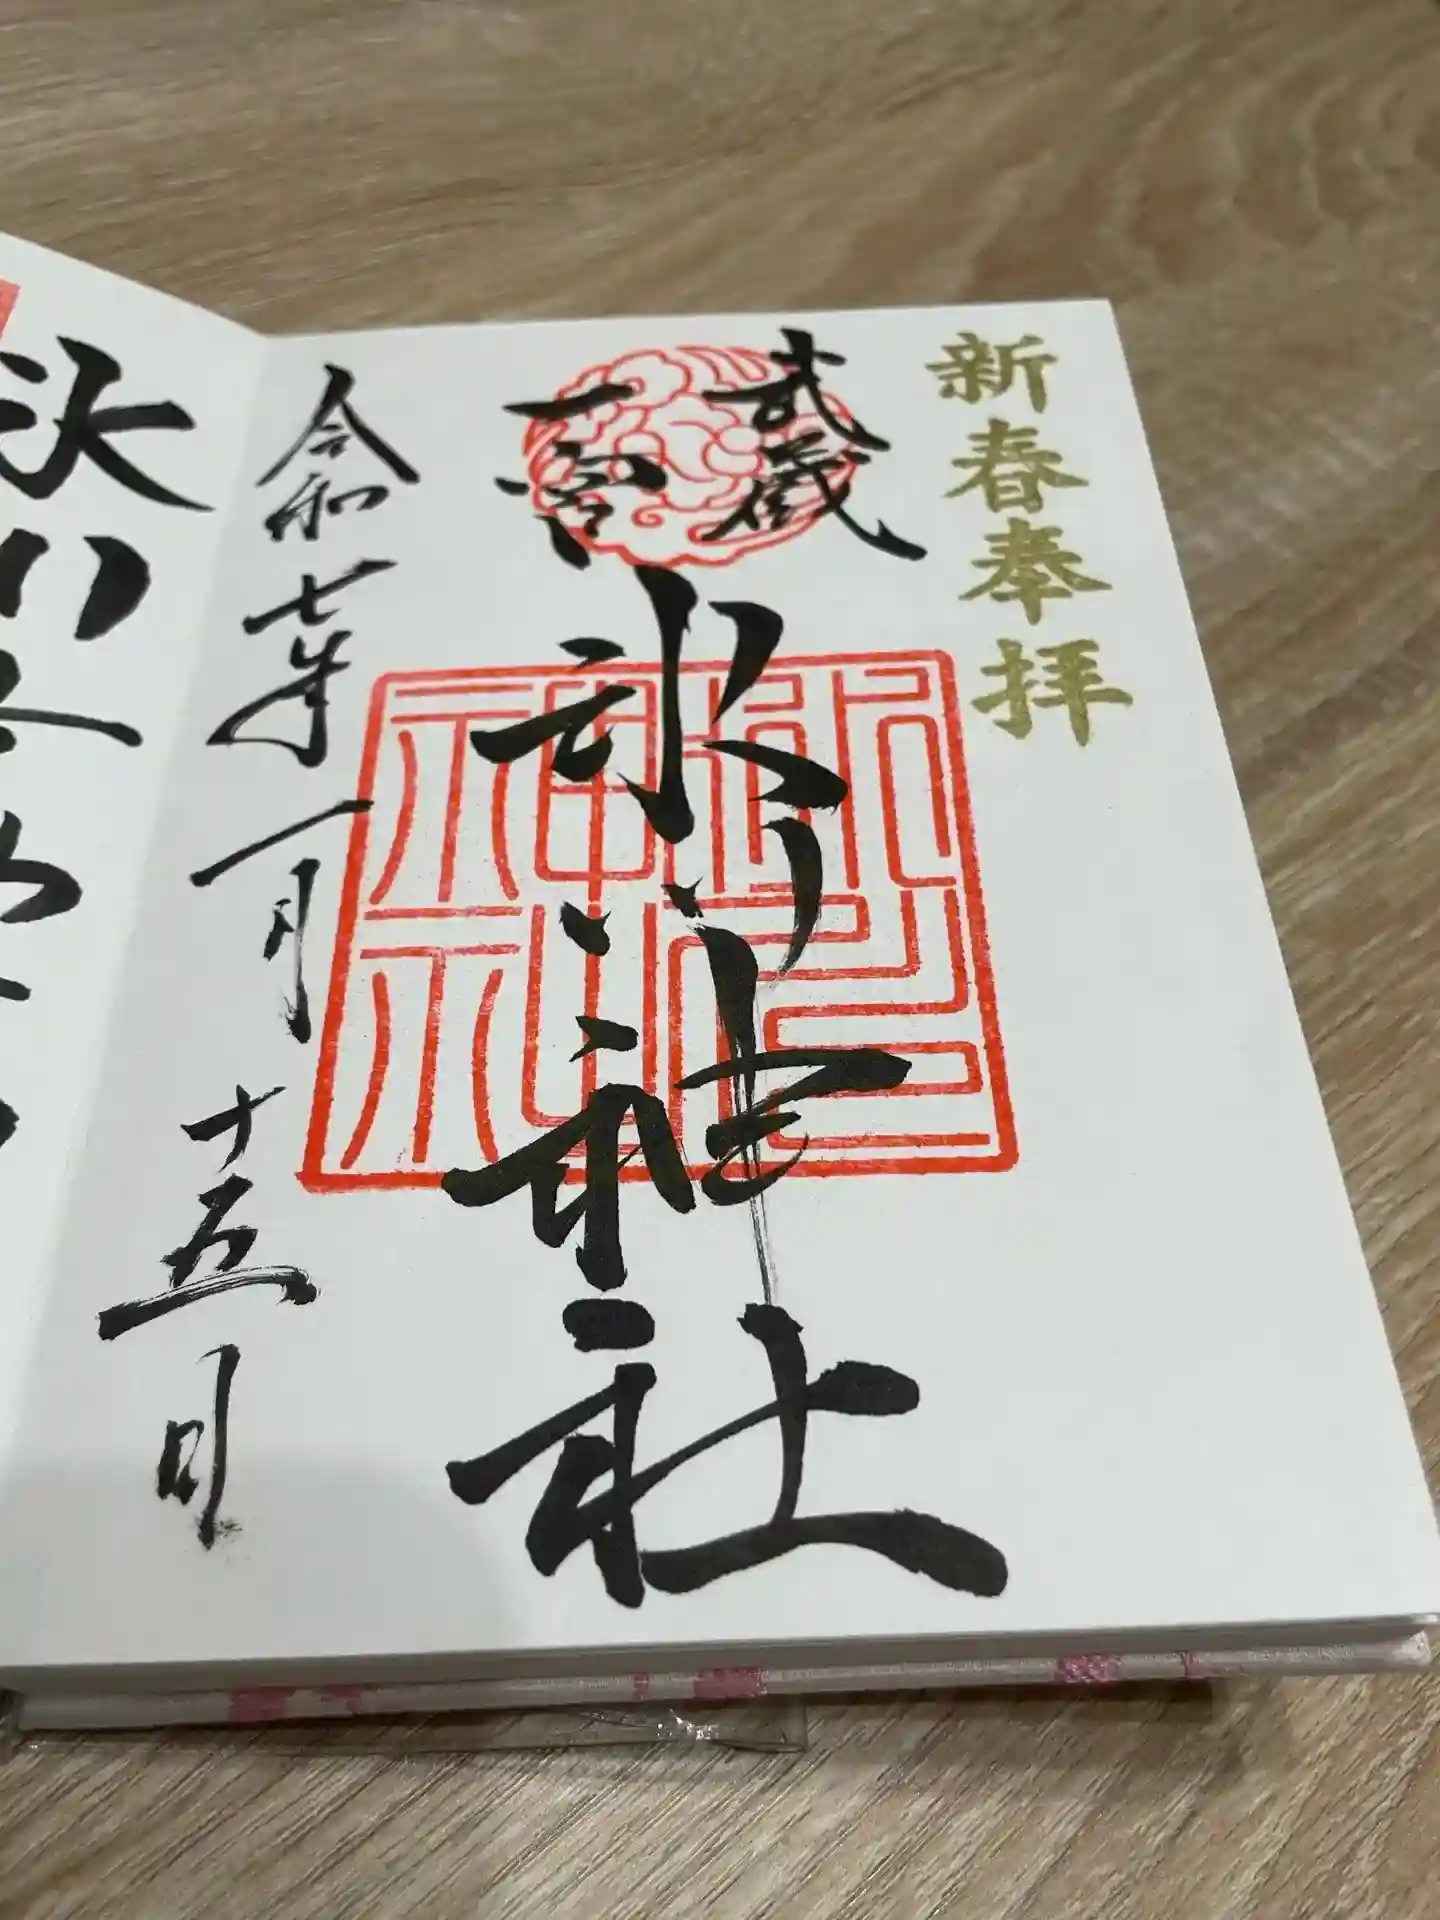 新春奉拝
武蔵
一宮
氷川神社
氷川神社
令和七年一月十五日
氷川